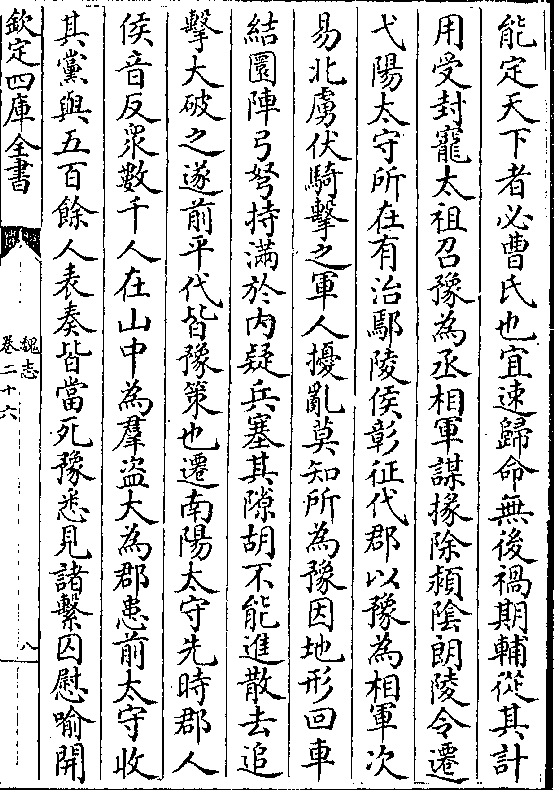 能定天下者必曹氏也宜速歸命無後禍期輔從其計
用受封寵太祖召豫為丞相軍謀掾除潁陰朗陵令遷
弋陽太守所在有治鄢陵侯彰征代郡以豫為相軍次
易北虜伏騎擊之軍人擾亂莫知所為豫因地形回車
結圜陣弓弩持滿於内疑兵塞其隙胡不能進散去追
擊大破之遂前平代皆豫策也遷南陽太守先時郡人
侯音反衆數千人在山中為羣盜大為郡患前太守收
其黨與五百餘人表奏皆當死豫悉見諸繫囚慰喻開
欽定四庫全書
魏志
卷二十六
八